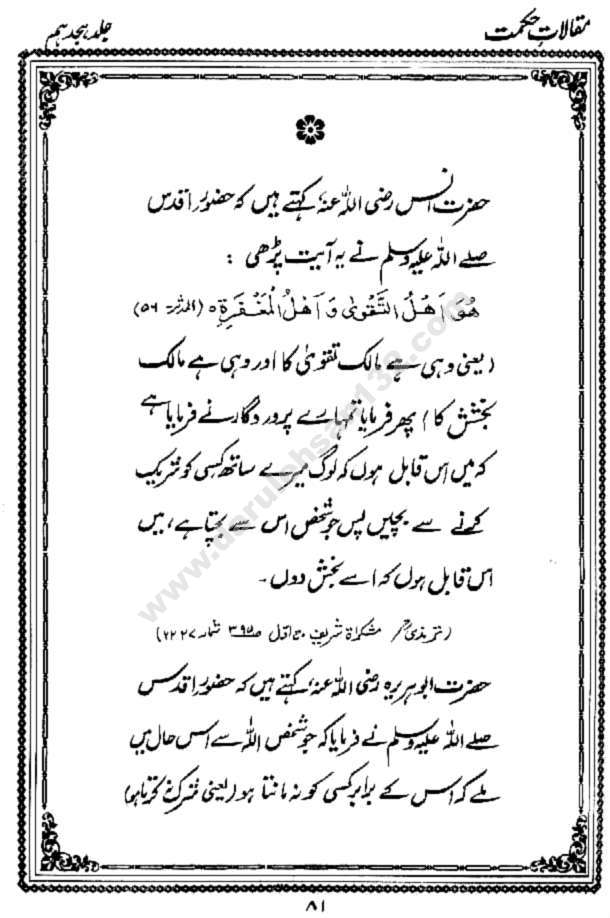 مقالاتِ حکمت
جلد ہجدہم
حضرت انس رضی اللہ عنہٗ کہتے ہیں کہ حضور اقدس
صلے اللہ علیہ وسلم نے یہ آیت پڑھی :
هُوَ اَهْلُ التَّقْوٰى وَ اَهْلُ الْمَغْفِرَةِ ٥ (المدثر ۵۶)
(یعنی وہی ہے مالک تقویٰ کا اور وہی ہے مالک
بخشش کا) پھر فرمایا تمہارے پروردگار نے فرمایا ہے
کہ میں اس قابل ہوں کہ لوگ میرے ساتھ کسی کو شریک
کرنے سے بچیں پس جو شخص اس سے بچتا ہے ، میں
اس قابل ہوں کہ اسے بخش دوں ۔
(ترمذیؒ / مشکوٰۃ شریف ج اول ص ۳۹۵ شمار ۲۲۲۷)
حضرت ابوہریرہ رضی اللہ عنہٗ کہتے ہیں کہ حضور اقدس
صلے اللہ علیہ وسلم نے فرمایا کہ جو شخص اللہ سے اس حال میں
ملے کہ اس کے برابر کسی کو نہ مانتا ہو (یعنی شرک نہ کرتا ہو)
۸۱